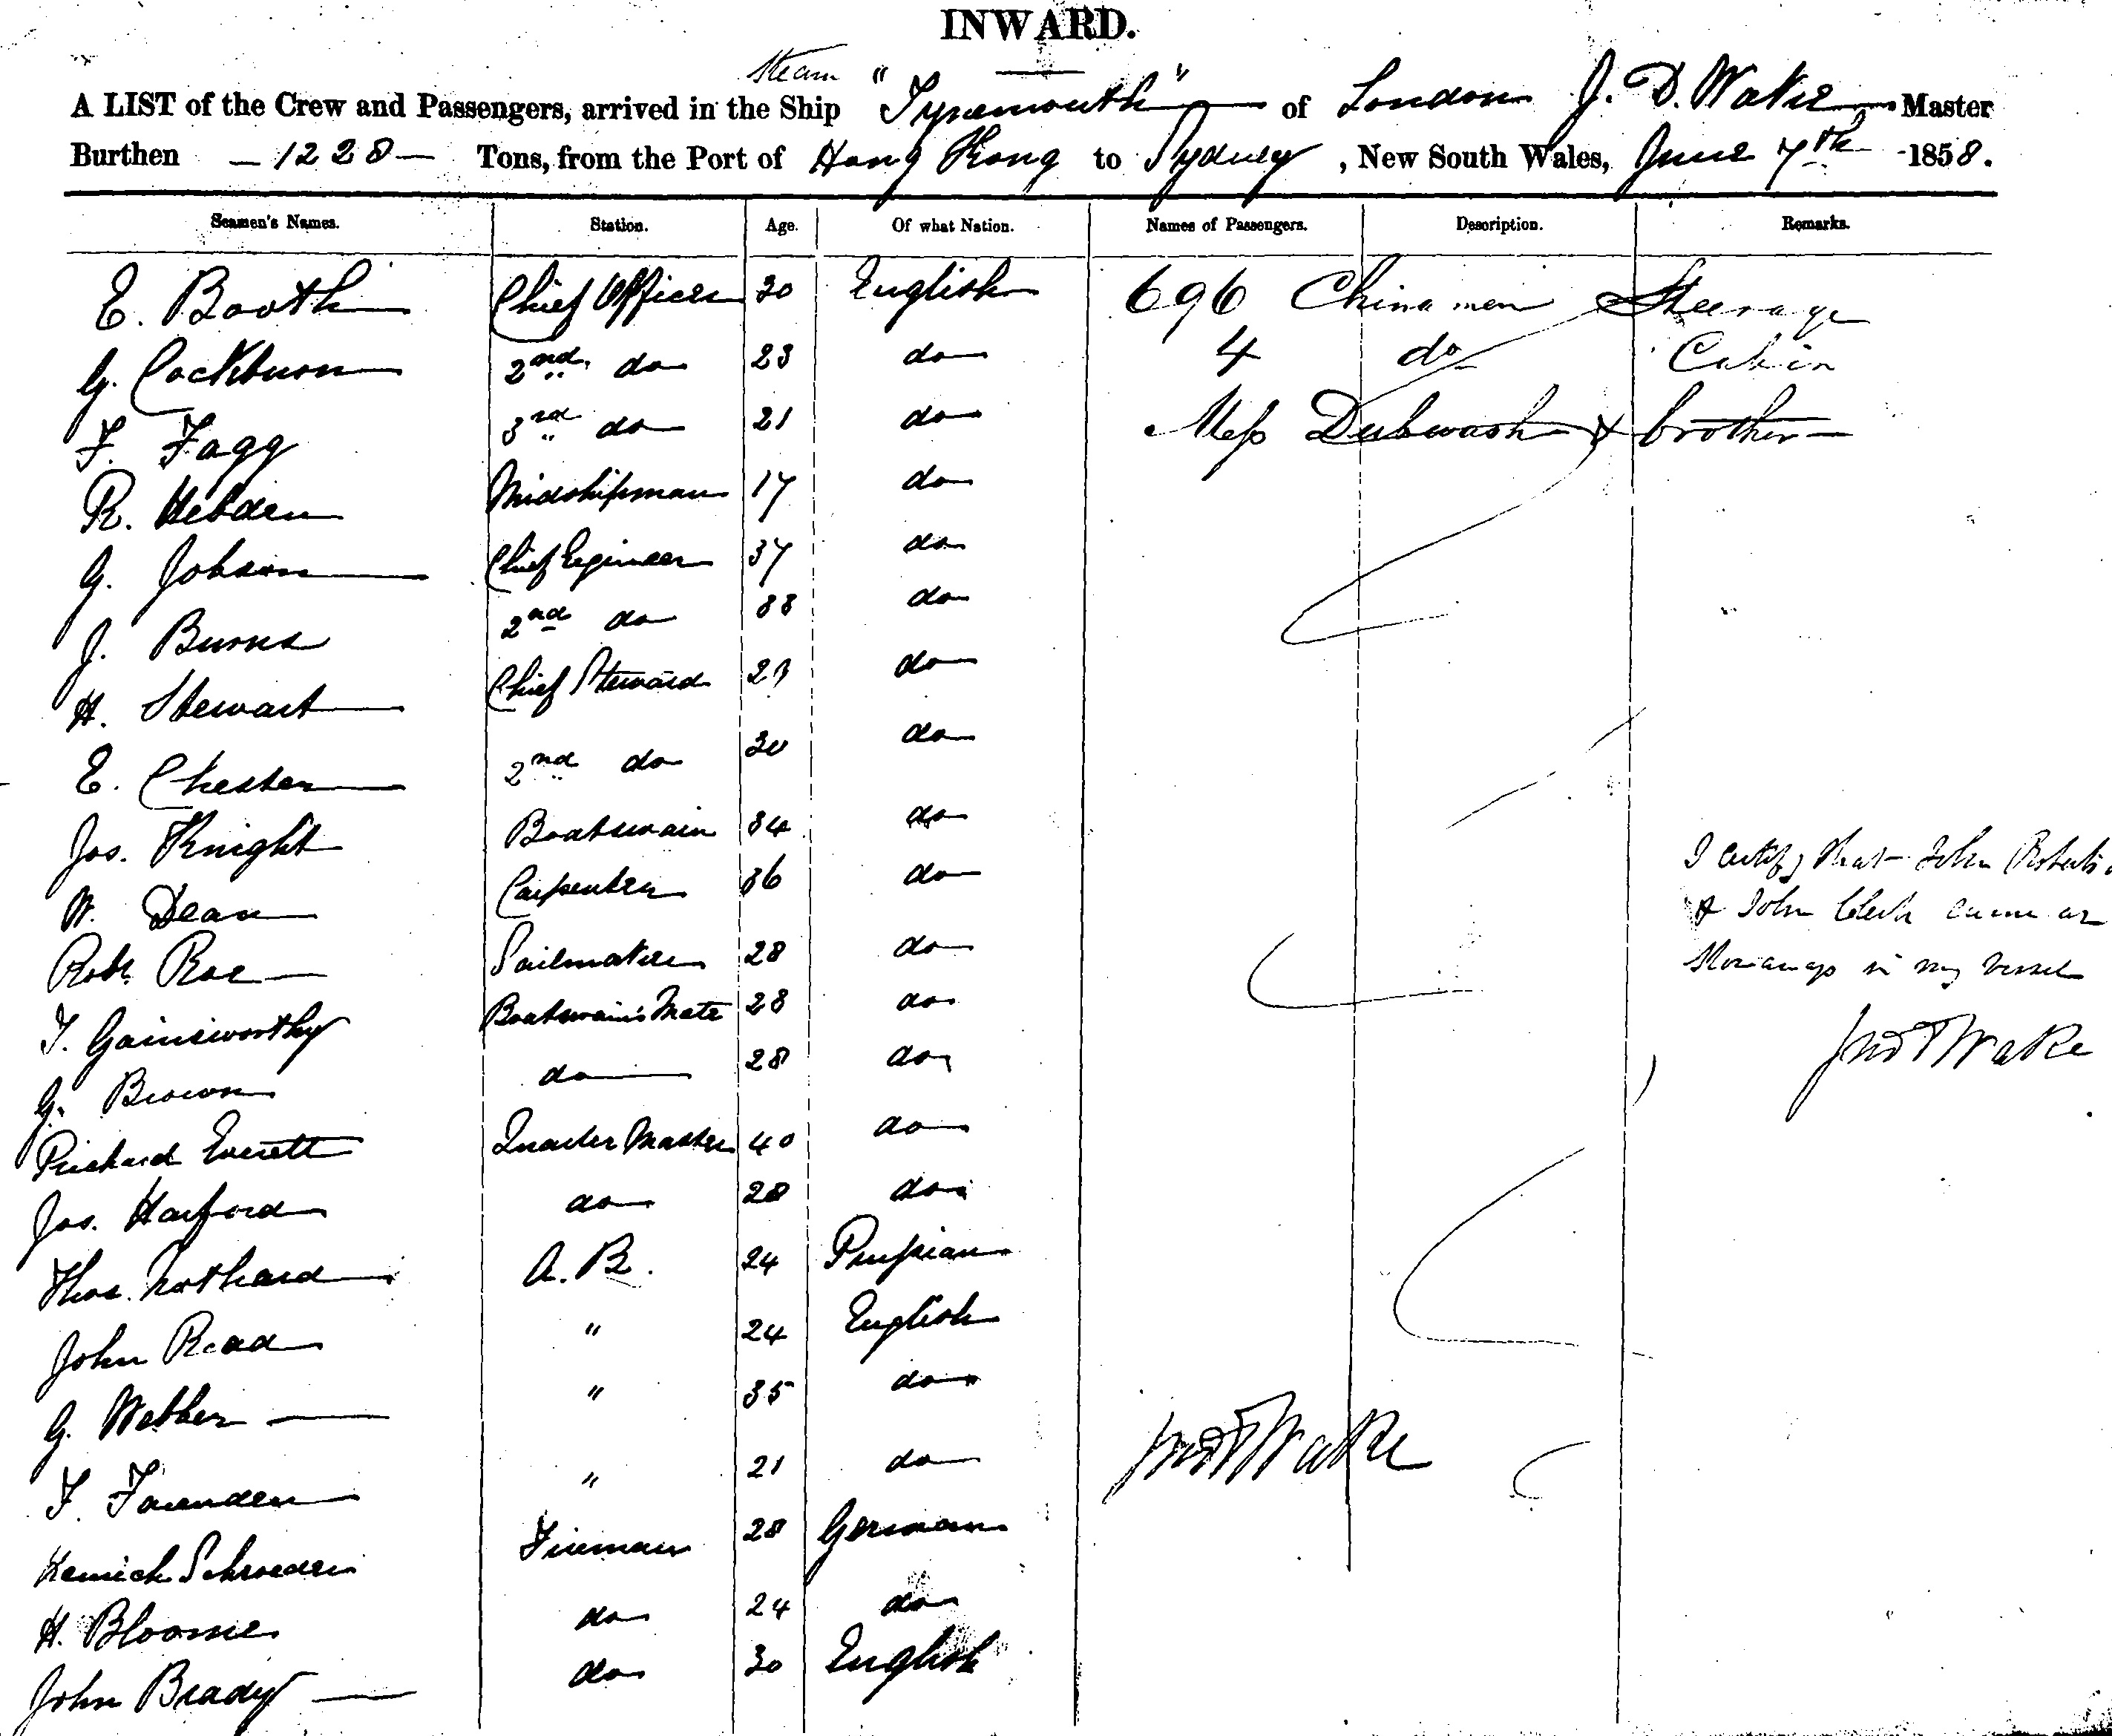 INWARD.
Steam
A LIST of the Crew and Passengers, arrived in the Ship "Tynemouth" of London J. D. Wake Master
Burthen — 1228 — Tons, from the Port of Hong Kong to Sydney, New South Wales, June 7th 1858.
Seamen's Names. Station. Age. Of what Nation. Names of Passengers. Description. Remarks.
E. Booth Chief Officer 30 English 696 China men Steerage
G. Cockburn 2nd do 23 do 4 do Cabin
F. Fagg 3rd do 21 do Mess & brother
R. Hebden Midshipman 17 do
G. Jobson Chief Egineer 37 do
J. Burns 2nd do 33 do
H. Stewart Chief Steward do
E. Chester 2nd do 30 do
Jos. Knight Boatswain 34 do
W. Dean Carpenter 36 do
Robt. Rae Sailmaker 28 do
T. Gainsworthy Boatswain's Mate 28 do
G. Brown do 28 do
Richard Everett Quarter Master 40 do
Jos. Harford do 28 do
Thos. Nothard A. B. 24 Prussian
John Read " 24 English
G. Webber " 35 do
F. " 21 do
Schroeder Fireman 28 German
H. Bloome do 24 do
John Brady do 30 English
I certify that John
& John Clerk came as
Stowaways in my vessel
Wake
Wake